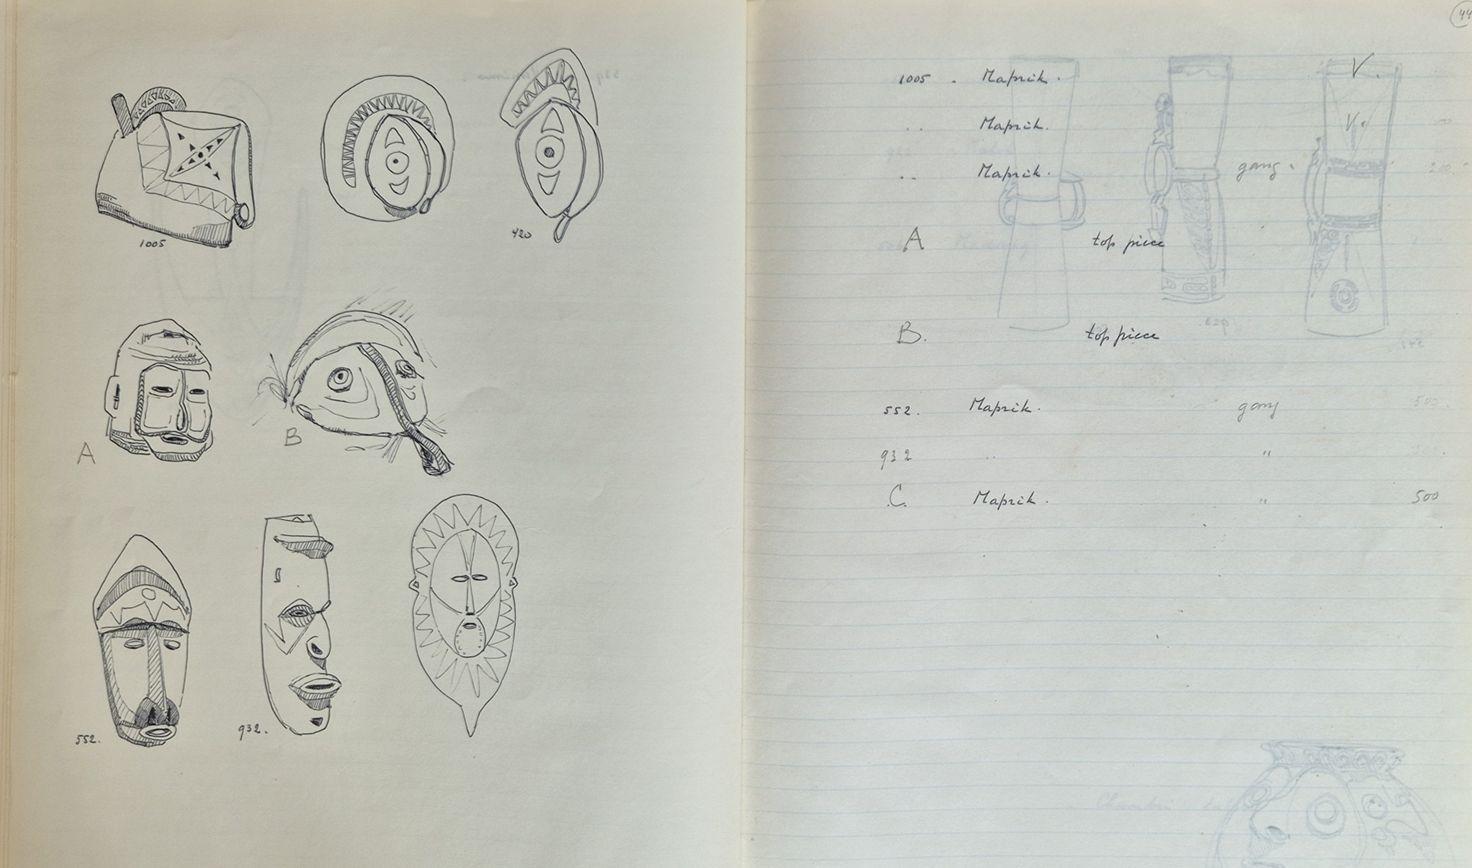 44
1005
420
A
B
552.
932.
1005 . Maprik.
.. Maprik.
.. Maprik. gang.
A top piece
B. top piece
552. Maprik. gang 500
932 .. "
C. Maprik. " 500